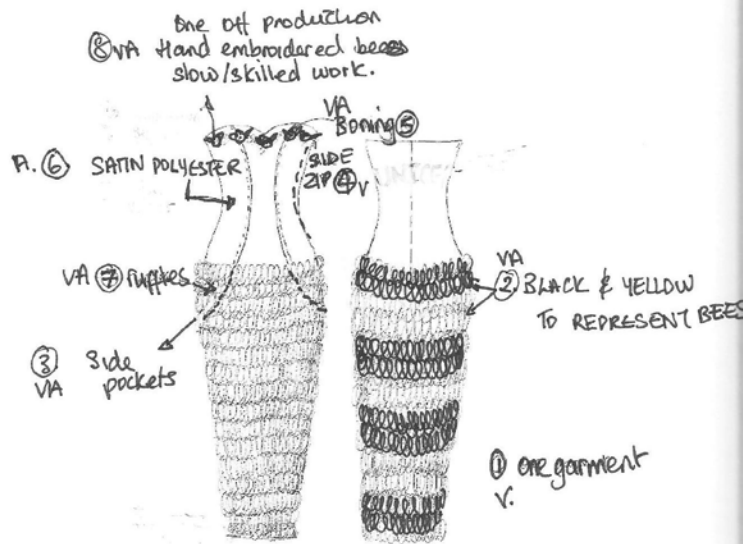 One off production
⑧ VA Hand embroidared bees
slow/skilled work.
VA
Boning ⑤
A. ⑥ SATIN POLYESTER
SIDE
ZIP ④ V
VA ⑦ ruffles
VA
② BLACK & YELLOW
TO REPRESENT BEES
③ Side
VA pockets
① one garment
V.